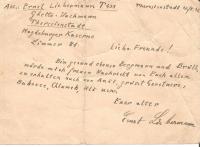 Abs.: Ernst Liebermann
Ghetto-Wachmann
Theresienstadt
Magdeburger Kaserne
Zimmer 81
Theresienstadt
Liebe Freunde!
Bin gesund ebenso Bergmann und Brüll,
würde mich freuen Nachricht von Euch allen
zu erhalten auch von
Euer alter
Ernst Liebermann